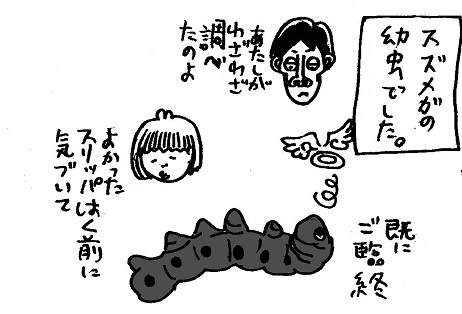 スズメガの
幼虫でした。
あたしが
わざわざ
調べ
たのよ
よかった
スリッパはく前に
気づいて
既に
ご臨終